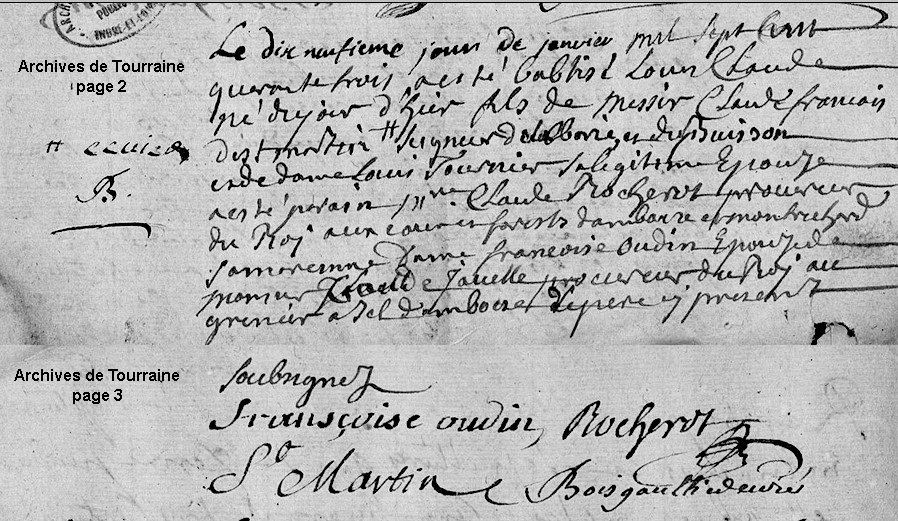 ARCH
PUBLI
INDRE-ET-LOIRE
Archives de Tourraine
page 2
Le dix neufieme jour de janvier mil sept cent
quarante trois a esté baptisé Louis Claude
né du jour d'hier fils de messir Claude francois
de st martin # Seigneur de la Borie et du Buisson
et de dame Louis Fournier sa legitime Epouze
a esté parain Claude Rocherot procureur
du Roj aux eaux et forests damboize et montrichard
sa mareinne Dame francoise oudin Epouze de
monsieur Claude Javelle procureur du Roj au
grenier a sel damboize Le pere y present
# ecuier
B.
Archives de Tourraine
page 3
soubsignez
Françoise oudin, Rocherot
St Martin Boisgaultier